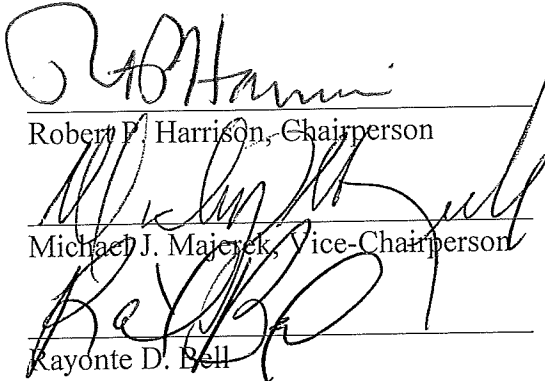 Robert P. Harrison, Chairperson
Michael J. Majerek, Vice-Chairperson
Rayonte D. Bell